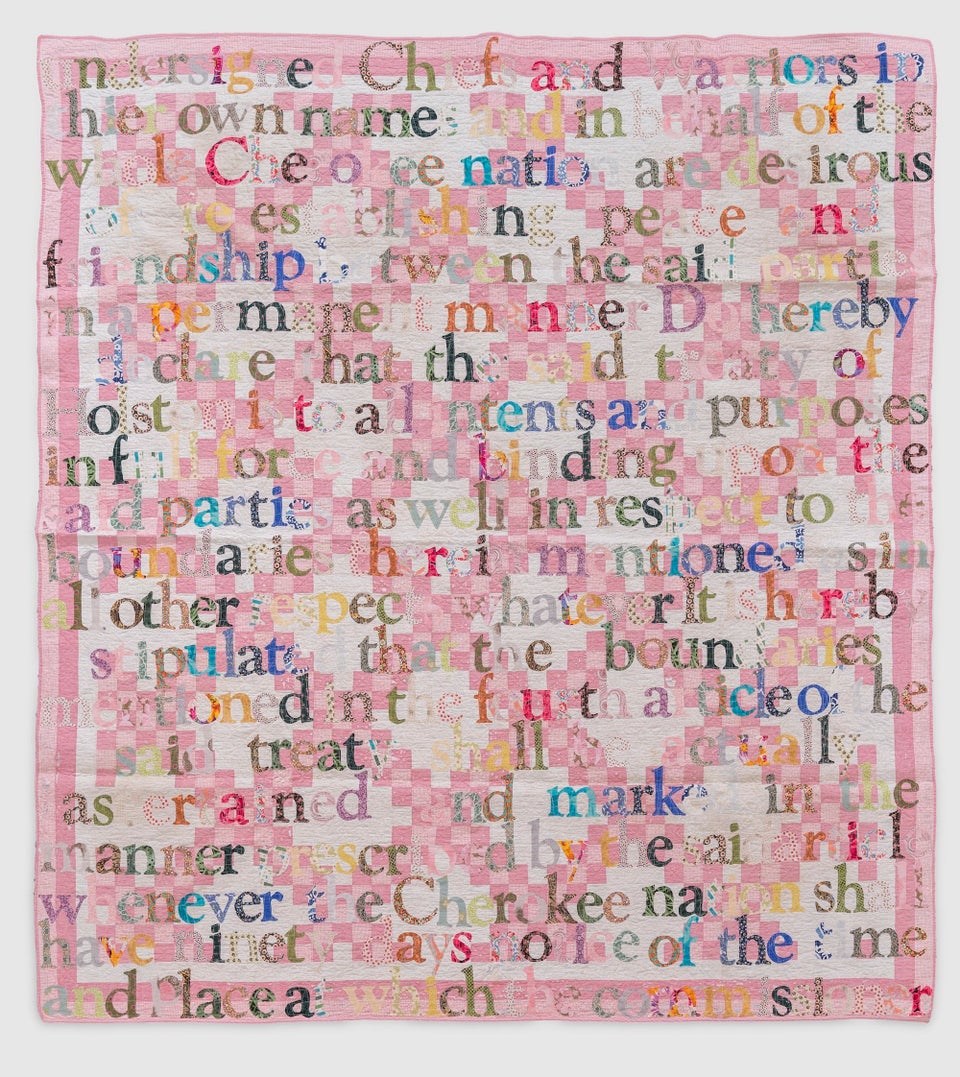 undersigned Chiefs and Warriors in
hier own names and in behalf of the
whole Cherokee nation are desirous
of reestablishing peace and
friendship between the said partie
in a permanent manner Do hereby
declare that the said treaty of
Holston is to all intents and purposes
in full force and binding upon the
said parties as well in respect to the
boundaries therein mentioned as in
all other respects whatever It is hereby
stipulated that the boundaries
mentioned in the fourth article of the
said treaty shall be actually
ascertained and marked in the
manner prescribed by the said article
whenever the Cherokee nation shall
have ninety days notice of the time
and Place at which the commissioner